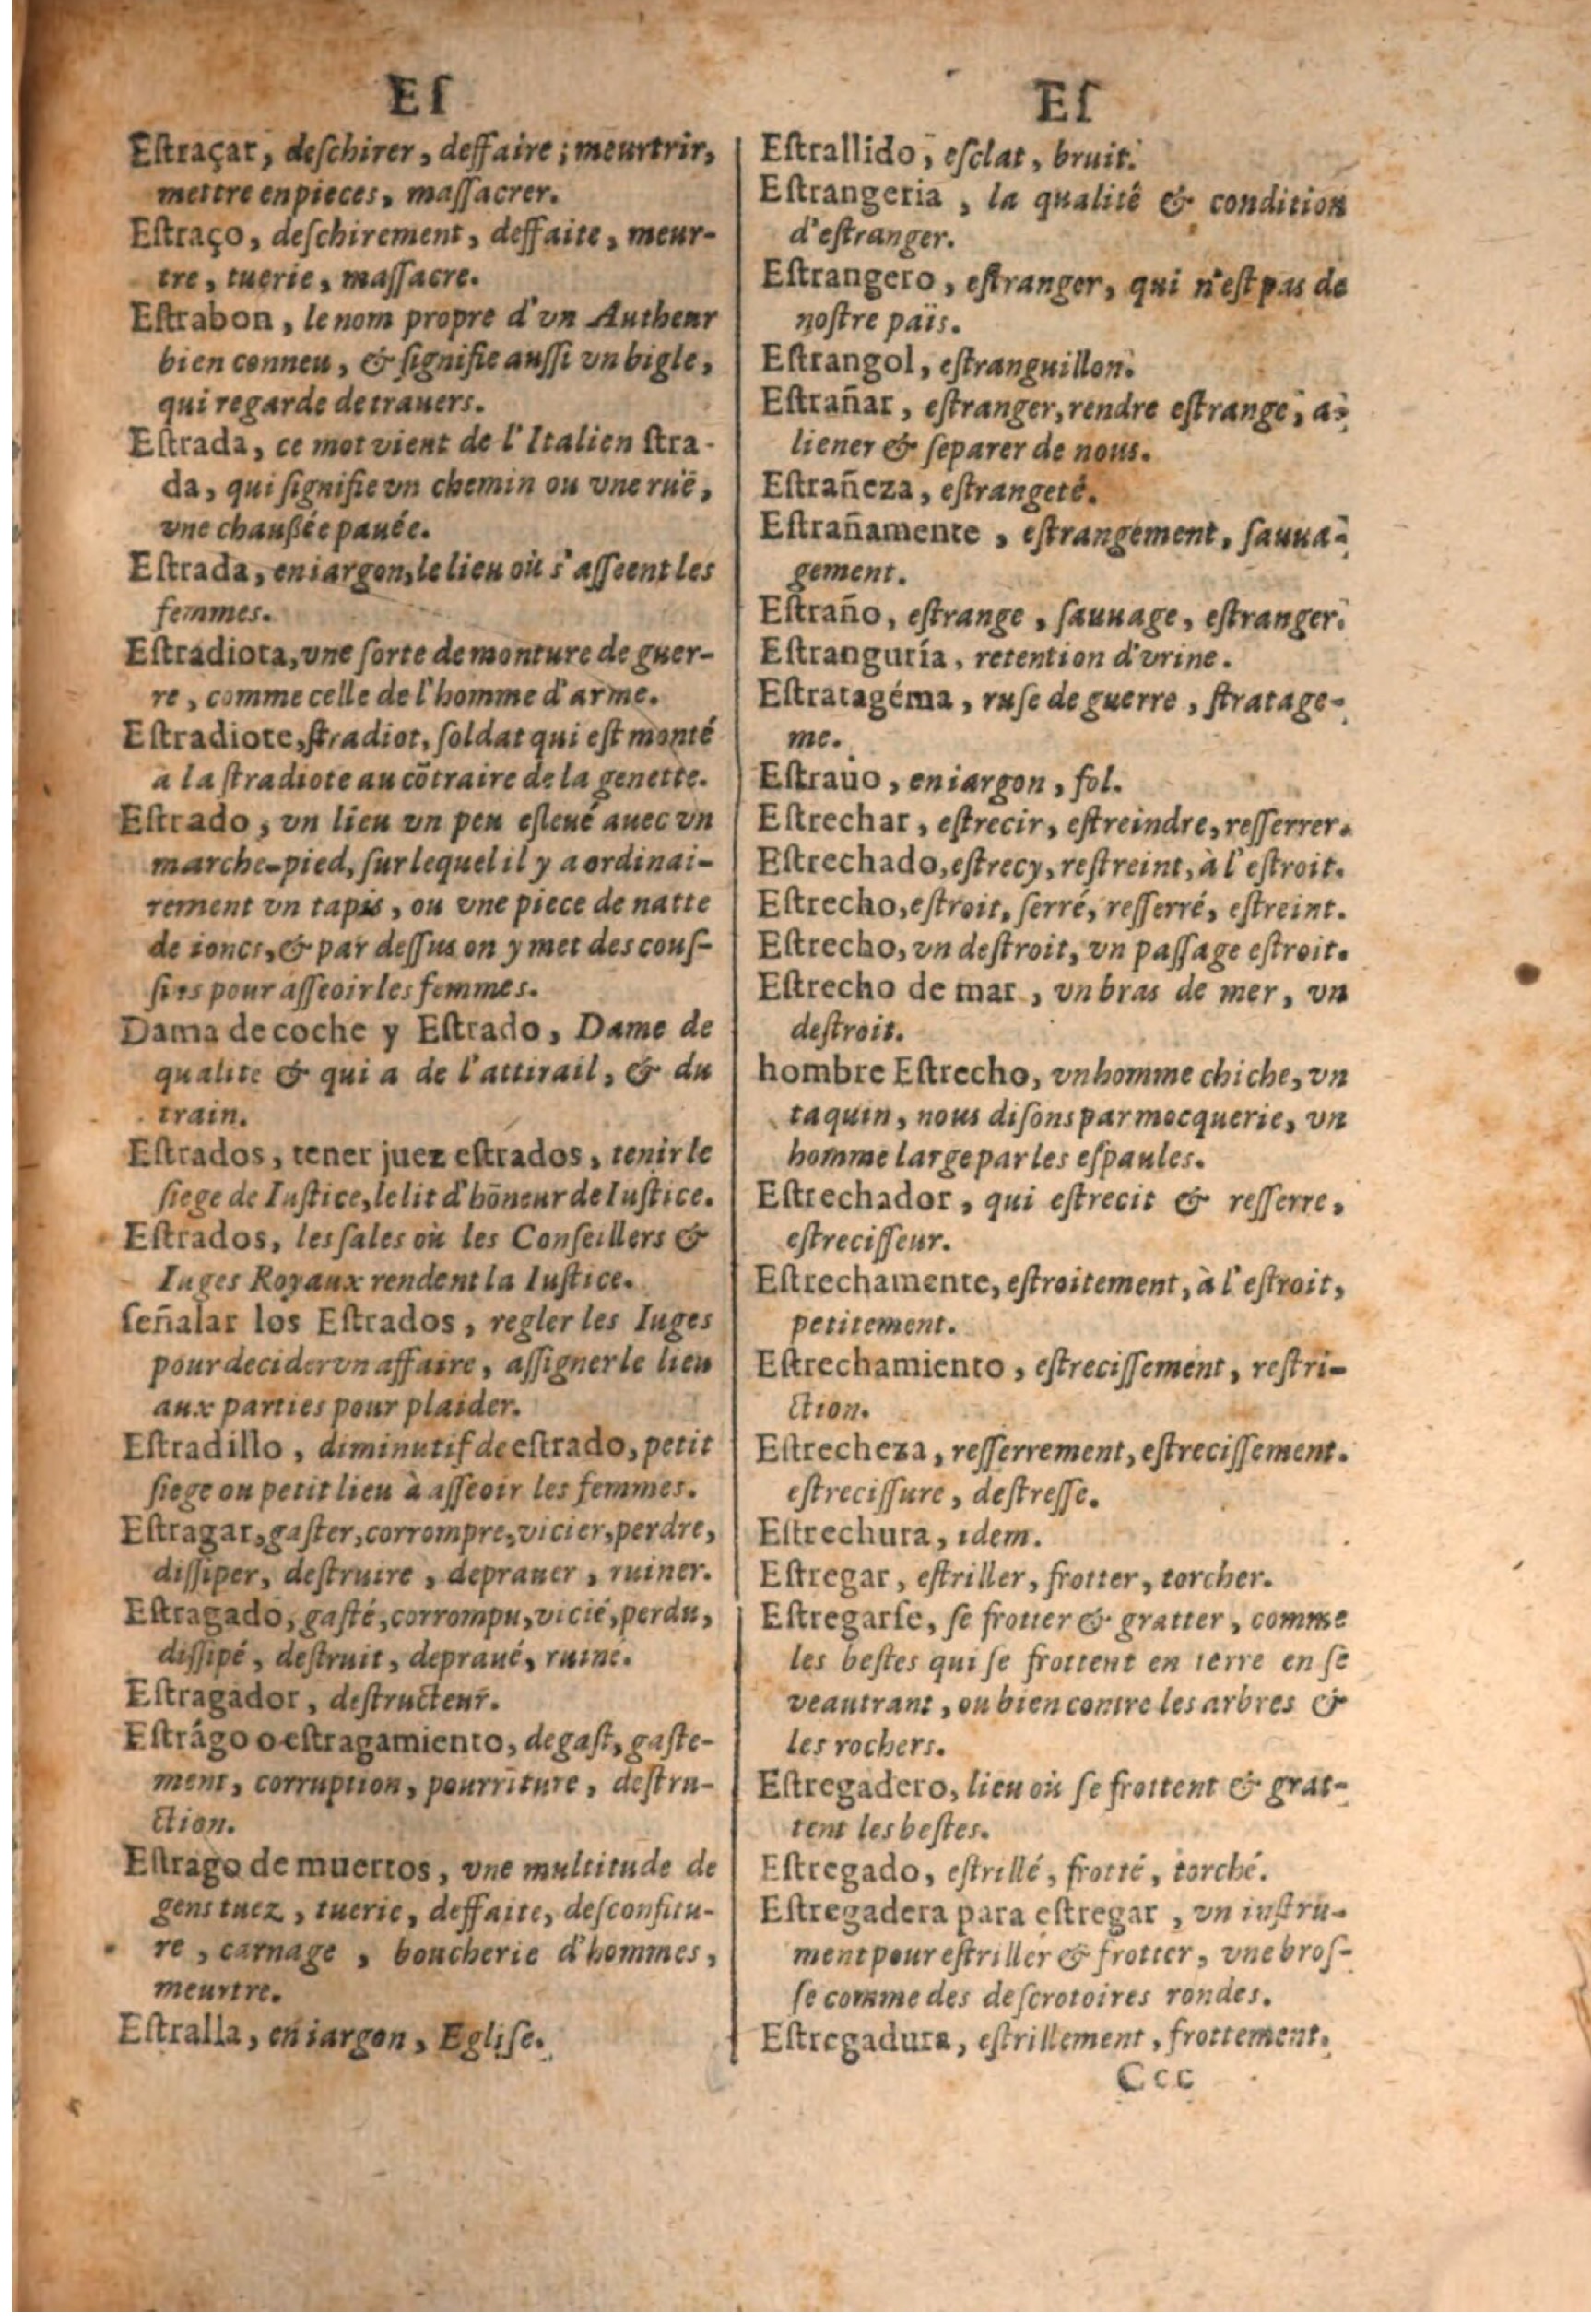 Eſ
Eſtraçar, deſchirer, deffaire; meurtrir,
mettre enpieces, maſſacrer.
Eſtraço, deſchirement, deffaite, meur-
tre, tuerie, maſſacre.
Eſtrabon, le nom propre d'vn Autheur
bien conneu, & ſignifie auſſi vn bigle,
qui regarde de trauers.
Eſtrada, ce mot vient de l'Italien ſtra-
da, qui ſignifie vn chemin ou vne ruë,
vne chauſſée pauée.
Eſtrada, en iargon, le lieu où s'aſſeent les
femmes.
Eſtradiota, vne ſorte de monture de guer-
re, comme celle de l'homme d'arme.
Eſtradiote, ſtradiot, ſoldat qui eſt monté
a la ſtradiote au cõtraire de la genette.
Eſtrado, vn lieu vn peu eſleué auec vn
marche-pied, ſur lequel il y a ordinai-
rement vn tapis, ou vne piece de natte
de ioncs, & par deſſus on y met des couſ-
ſins pour aſſeoir les femmes.
Dama de coche y Eſtrado, Dame de
qualite & qui a de l'attirail, & du
train.
Eſtrados, tener juez eſtrados, tenir le
ſiege de Iuſtice, le lit d'hõneur de Iuſtice.
Eſtrados, les ſales où les Conſeillers &
Iuges Royaux rendent la Iuſtice.
ſeñalar los Eſtrados, regler les Iuges
pour decider vn affaire, aſſigner le lieu
aux parties pour plaider.
Eſtradillo, diminutif de eſtrado, petit
ſiege ou petit lieu à aſſeoir les femmes.
Eſtragar, gaſter, corrompre, vicier, perdre,
diſſiper, deſtruire, deprauer, ruiner.
Eſtragado, gaſté, corrompu, vicié, perdu,
diſſipé, deſtruit, depraué, ruiné.
Eſtragador, deſtructeur.
Eſtrágo o eſtragamiento, degaſt, gaſte-
ment, corruption, pourriture, deſtru-
ction.
Eſtrago de muertos, vne multitude de
gens tuez, tuerie, deffaite, deſconfitu-
re, carnage, boucherie d'hommes,
meurtre.
Eſtralla, en iargon, Egliſe.
Eſ
Eſtrallido, eſclat, bruit.
Eſtrangeria, la qualité & condition
d'eſtranger.
Eſtrangero, eſtranger, qui n'eſt pas de
noſtre païs.
Eſtrangol, eſtranguillon.
Eſtrañar, eſtranger, rendre eſtrange, a-
liener & ſeparer de nous.
Eſtrañeza, eſtrangeté.
Eſtrañamente, eſtrangement, ſauua-
gement.
Eſtraño, eſtrange, ſauuage, eſtranger.
Eſtranguría, retention d'vrine.
Eſtratagéma, ruſe de guerre, ſtratage-
me.
Eſtraüo, en iargon, fol.
Eſtrechar, eſtrecir, eſtreindre, reſſerrer.
Eſtrechado, eſtrecy, reſtreint, à l'eſtroit.
Eſtrecho, eſtroit, ſerré, reſſerré, eſtreint.
Eſtrecho, vn deſtroit, vn paſſage eſtroit.
Eſtrecho de mar, vn bras de mer, vn
deſtroit.
hombre Eſtrecho, vn homme chiche, vn
taquin, nous diſons par mocquerie, vn
homme large par les eſpaules.
Eſtrechador, qui eſtrecit & reſſerre,
eſtreciſſeur.
Eſtrechamente, eſtroitement, à l'eſtroit,
petitement.
Eſtrechamiento, eſtreciſſement, reſtri-
ction.
Eſtrecheza, reſſerrement, eſtreciſſement.
eſtreciſſure, deſtreſſe.
Eſtrechura, idem.
Eſtregar, eſtriller, frotter, torcher.
Eſtregarſe, ſe frotter & gratter, comme
les beſtes qui ſe frottent en terre en ſe
veautrant, ou bien contre les arbres &
les rochers.
Eſtregadero, lieu où ſe frottent & grat-
tent les beſtes.
Eſtregado, eſtrillé, frotté, torché.
Eſtregadera para eſtregar, vn inſtru-
ment pour eſtriller & frotter, vne broſ-
ſe comme des deſcrotoires rondes.
Eſtregadura, eſtrillement, frottement.
Ccc